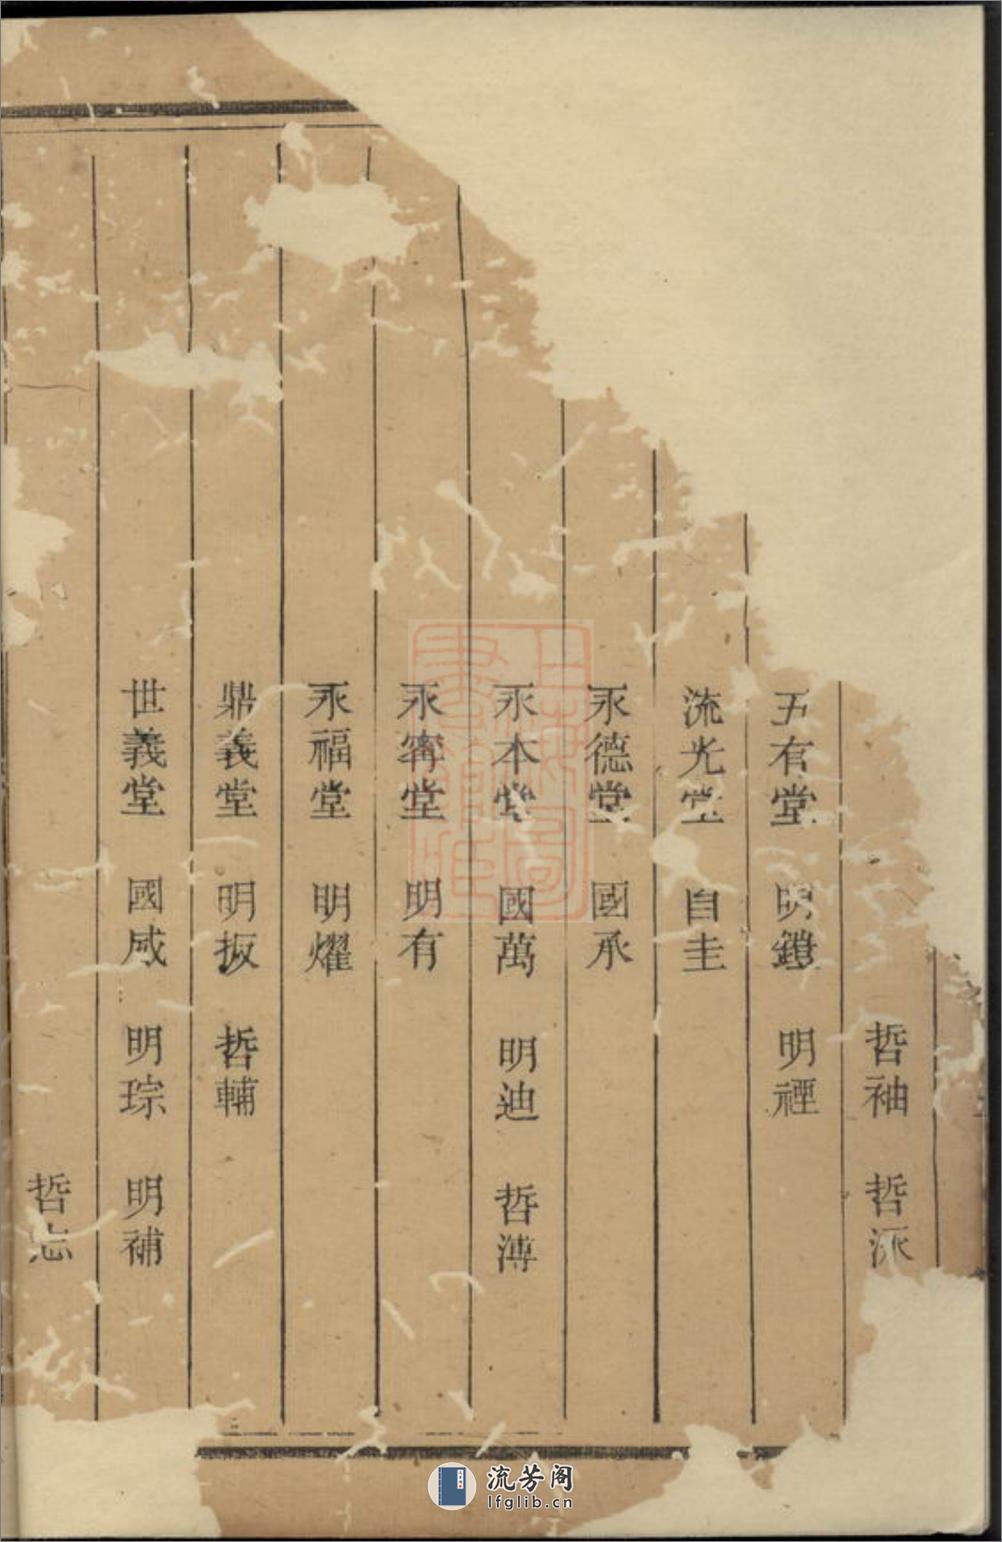 哲袖 哲派
五有堂 明鐙 明禋
流光堂 自圭
永德堂 國承
永本堂 國萬 明迪 哲溥
永寧堂 明有
永福堂 明燿
鼎義堂 明扳 哲輔
世義堂 國咸 明琮 明補
哲志
流芳阁
lfglib.cn